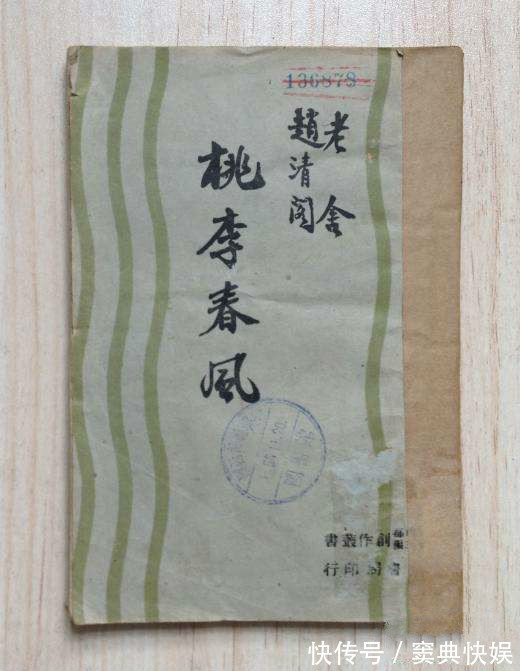 136878
老舍
趙清閣
桃李春風
創作叢書
書局印行
快传号／窦典快娱